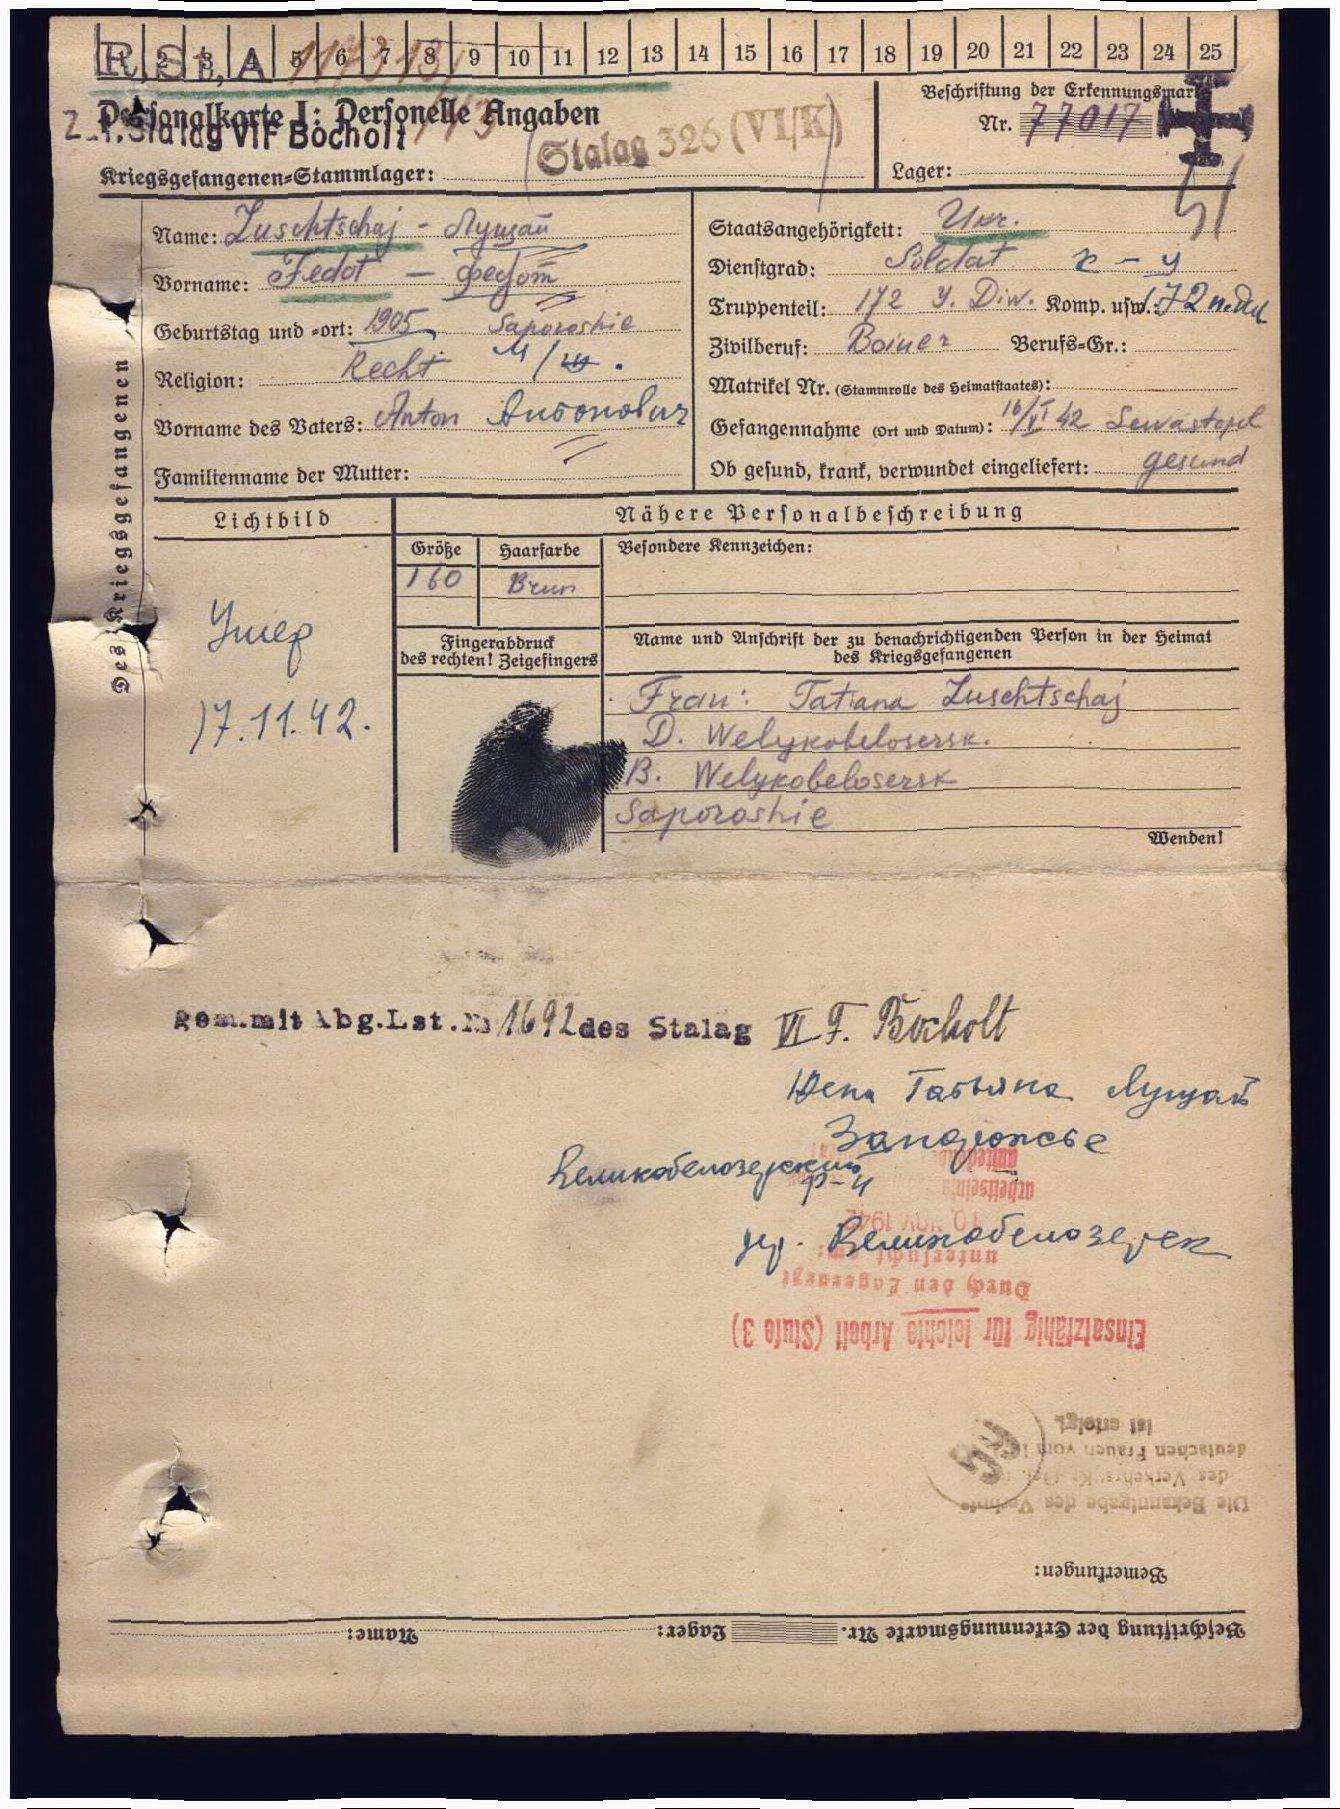 1 2 3 4 5 6 7 8 9 10 11 12 13 14 15 16 17 18 19 20 21 22 23 24 25
R. St. A
Personalkarte I: Personelle Angaben
Stalag VIF Bocholt
Stalag 326 (VI/K)
Kriegsgefangenen-Stammlager:
Beschriftung der Erkennungsmarke
Nr. 77017
Lager:
Des Kriegsgefangenen
Name: Luschtschaj - Лущай
Vorname: Fedot - Федот
Geburtstag und -ort: 1905 Saporoshie
Religion: Recht
Vorname des Vaters: Anton Антонович
Familienname der Mutter:
Staatsangehörigkeit: Ukr.
Dienstgrad: Soldat
Truppenteil: 172 J. Diw. Komp. usw.: 172
Zivilberuf: Bauer Berufs-Gr.:
Matrikel Nr. (Stammrolle des Heimatstaates):
Gefangennahme (Ort und Datum): 42 Sewastopol
Ob gesund, krank, verwundet eingeliefert: gesund
Lichtbild
Nähere Personalbeschreibung
Größe Haarfarbe Besondere Kennzeichen:
160 Brun
Fingerabdruck
des rechten! Zeigefingers
Name und Anschrift der zu benachrichtigenden Person in der Heimat
des Kriegsgefangenen
Умер
17.11.42.
Frau: Tatiana Luschtschaj
D. Welykobelosersk.
B. Welykobelosersk
Saporoshie
Wenden!
gem. mit Abg.Lst.Nr 1692 des Stalag VI F. Bocholt
Жена Татьяна Лущай
Запорожье
Великобелозерский
р-н
дер. Великобелозерск
10. NOV 1942
untersucht am:
Durch den Lagerarzt
Einsatzfähig für leichte Arbeit (Stufe 3)
ist erfolgt.
deutschen Frauen vom
des Verkehrs
Die Bekanntgabe des Verbots
Bemerkungen:
Beschriftung der Erkennungsmarke Nr. Lager: Name: